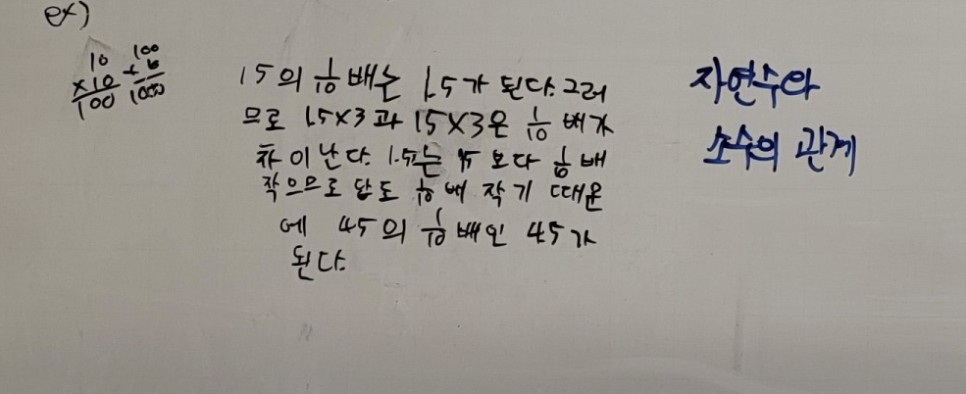 ex)
10
×10
100
100
1000
15의 1/10 배는 1.5가 된다. 그러
므로 1.5×3과 15×3은 1/10 배가
차이난다. 1.5는 15 보다 1/10 배
작으므로 답도 1/10 배 작기 때문
에 45의 1/10 배인 4.5가
된다.
자연수와
소수의 관계